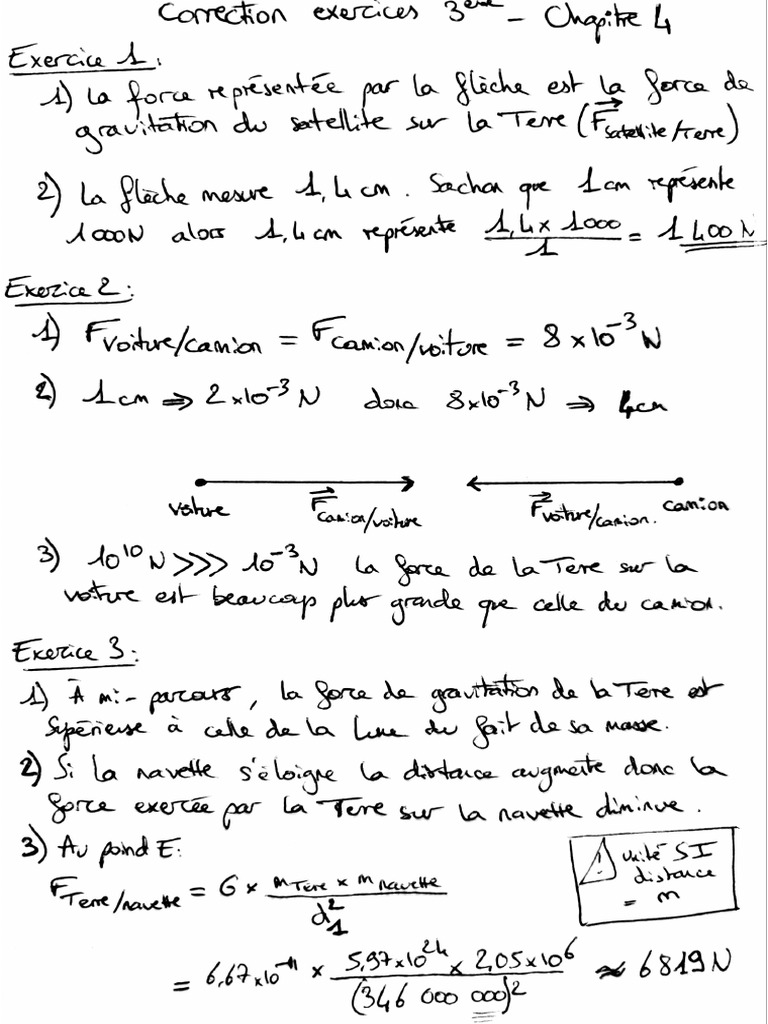 Correction exercices 3ème - Chapitre 4
Exercice 1 :
1) La force représentée par la flèche est la force de
gravitation du satellite sur la Terre (F satellite/Terre)
2) La flèche mesure 1,4 cm. Sachan que 1 cm représente
1000N alors 1,4 cm représente (1,4 x 1000)/1 = 1 400 N
Exercice 2 :
1) F voiture/camion = F camion/voiture = 8 x 10⁻³ N
2) 1 cm ⇒ 2 x 10⁻³ N donc 8 x 10⁻³ N ⇒ 4 cm
voiture F camion/voiture F voiture/camion. camion
3) 10¹⁰ N >>> 10⁻³ N La force de la Terre sur la
voiture est beaucoup plus grande que celle du camion.
Exercice 3 :
1) À mi-parcours, la force de gravitation de la Terre est
supérieure à celle de la Lune du fait de sa masse.
2) Si la navette s'éloigne la distance augmente donc la
force exercée par la Terre sur la navette diminue.
3) Au point E :
F Terre/navette = G x (m Terre x m navette)/d₁²
! unité SI
distance
= m
= 6,67 x 10⁻¹¹ x (5,97 x 10²⁴ x 2,05 x 10⁶)/(346 000 000)² ≈ 6819 N